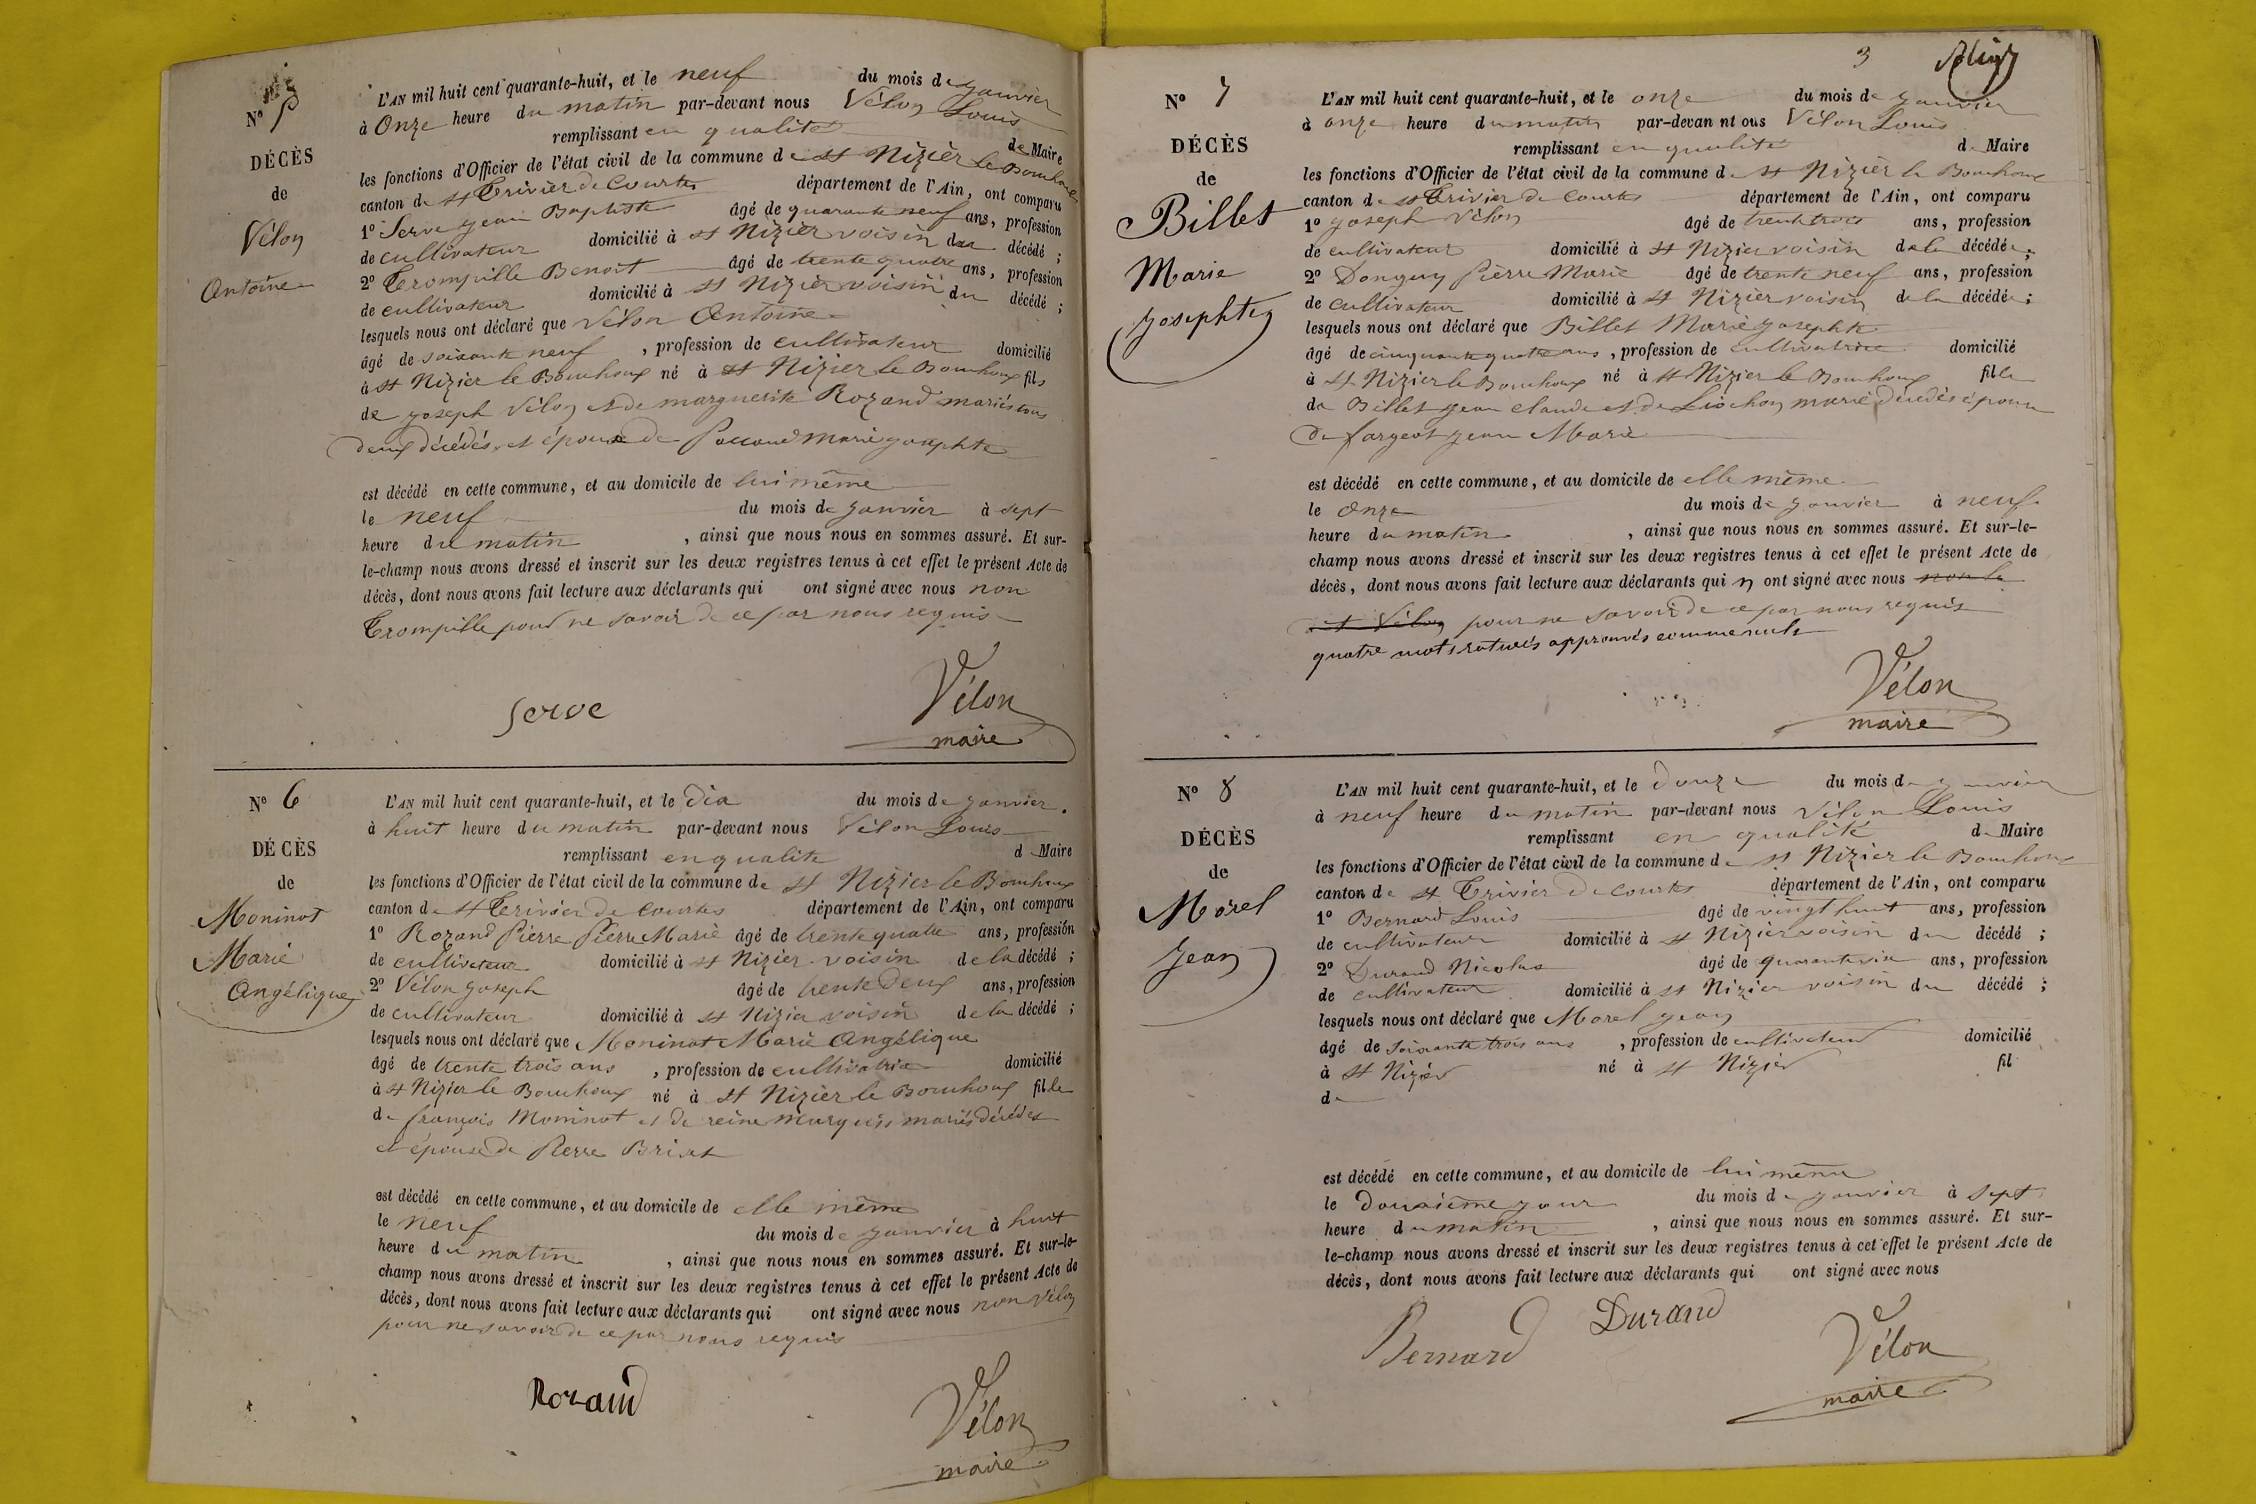 N° 5
DÉCÈS
de
Vélon
Antoine
L'AN mil huit cent quarante-huit, et le neuf du mois de janvier
à Onze heure du matin par-devant nous Vélon Louis
remplissant en qualité de Maire
les fonctions d'Officier de l'état civil de la commune de St Nizier le Bouchoux
canton de St Trivier de Courtes département de l'Ain, ont comparu
1° Serve Jean Baptiste âgé de quarante neuf ans, profession
de cultivateur domicilié à St Nizier voisin du décédé ;
2° Trompille Benoit âgé de trente quatre ans, profession
de cultivateur domicilié à St Nizier voisin du décédé ;
lesquels nous ont déclaré que Vélon Antoine
âgé de soixante neuf , profession de cultivateur domicilié
à St Nizier le Bouchoux né à St Nizier le Bouchoux fils
de Joseph Vélon et de marguerite Rozand mariés tous
deux décédés et époux de Paccoud Marie Josephte
est décédé en cette commune, et au domicile de lui même
le neuf du mois de janvier à sept
heure du matin , ainsi que nous nous en sommes assuré. Et sur-
le-champ nous avons dressé et inscrit sur les deux registres tenus à cet effet le présent Acte de
décès, dont nous avons fait lecture aux déclarants qui ont signé avec nous non
Trompille pour ne savoir de ce par nous requis
Serve
Vélon
maire
N° 6
DÉCÈS
de
Moninot
Marie
Angélique
L'AN mil huit cent quarante-huit, et le dix du mois de janvier.
à huit heure du matin par-devant nous Vélon Louis
remplissant en qualité d Maire
les fonctions d'Officier de l'état civil de la commune de St Nizier le Bouchoux
canton de St Trivier de Courtes département de l'Ain, ont comparu
1° Rozand Pierre Pierre Marie âgé de trente quatre ans, profession
de cultivateur domicilié à St Nizier voisin de la décédé ;
2° Vélon Joseph âgé de trente deux ans, profession
de cultivateur domicilié à St Nizier voisin de la décédé ;
lesquels nous ont déclaré que Moninot Marie Angélique
âgé de trente trois ans , profession de cultivatrice domicilié
à St Nizier le Bouchoux né à St Nizier le Bouchoux fille
de françois Moninot et de reine Marguis mariés décédés
et épouse de Pierre Briat
est décédé en cette commune, et au domicile de elle même
le neuf du mois de janvier à huit
heure du matin , ainsi que nous nous en sommes assuré. Et sur-le-
champ nous avons dressé et inscrit sur les deux registres tenus à cet effet le présent Acte de
décès, dont nous avons fait lecture aux déclarants qui ont signé avec nous non Vélon
pour ne savoir de ce par nous requis
Rozand
Vélon
maire
3
N° 7
DÉCÈS
de
Billet
Marie
Josephte
L'AN mil huit cent quarante-huit, et le onze du mois de janvier
à onze heure du matin par-devan nt ous Vélon Louis
remplissant en qualité de Maire
les fonctions d'Officier de l'état civil de la commune de St Nizier le Bouchoux
canton de St Trivier de Courtes département de l'Ain, ont comparu
1° Joseph Vélon âgé de trente trois ans, profession
de cultivateur domicilié à St Nizier voisin de la décédée ;
2° Donguy Pierre Marie âgé de trente neuf ans, profession
de cultivateur domicilié à St Nizier voisin de la décédée ;
lesquels nous ont déclaré que Billet Marie Josephte
âgé de cinquante quatre ans , profession de cultivatrice domicilié
à St Nizier le Bouchoux né à St Nizier le Bouchoux fille
de Billet Jean Claude et de Liochon marie décédés épouse
de fargeot Jean Marie
est décédé en cette commune, et au domicile de elle même
le Onze du mois de janvier à neuf
heure du matin , ainsi que nous nous en sommes assuré. Et sur-le-
champ nous avons dressé et inscrit sur les deux registres tenus à cet effet le présent Acte de
décès, dont nous avons fait lecture aux déclarants qui n ont signé avec nous non le
dit Vélon pour ne savoir de ce par nous requis
quatre mots raturés approuvés comme nuls
Vélon
maire
N° 8
DÉCÈS
de
Morel
Jean
L'AN mil huit cent quarante-huit, et le douze du mois de janvier
à neuf heure du matin par-devant nous Vélon Louis
remplissant en qualité de Maire
les fonctions d'Officier de l'état civil de la commune de St Nizier le Bouchoux
canton de St Trivier de Courtes département de l'Ain, ont comparu
1° Bernard Louis âgé de vingt huit ans, profession
de cultivateur domicilié à St Nizier voisin du décédé ;
2° Durand Nicolas âgé de quarante six ans, profession
de cultivateur domicilié à St Nizier voisin du décédé ;
lesquels nous ont déclaré que Morel Jean
âgé de soixante trois ans , profession de cultivateur domicilié
à St Nizier né à St Nizier fil
de
est décédé en cette commune, et au domicile de lui même
le douxième jour du mois de janvier à sept
heure du matin , ainsi que nous nous en sommes assuré. Et sur-
le-champ nous avons dressé et inscrit sur les deux registres tenus à cet effet le présent Acte de
décès, dont nous avons fait lecture aux déclarants qui ont signé avec nous
Bernard Durand
Vélon
maire